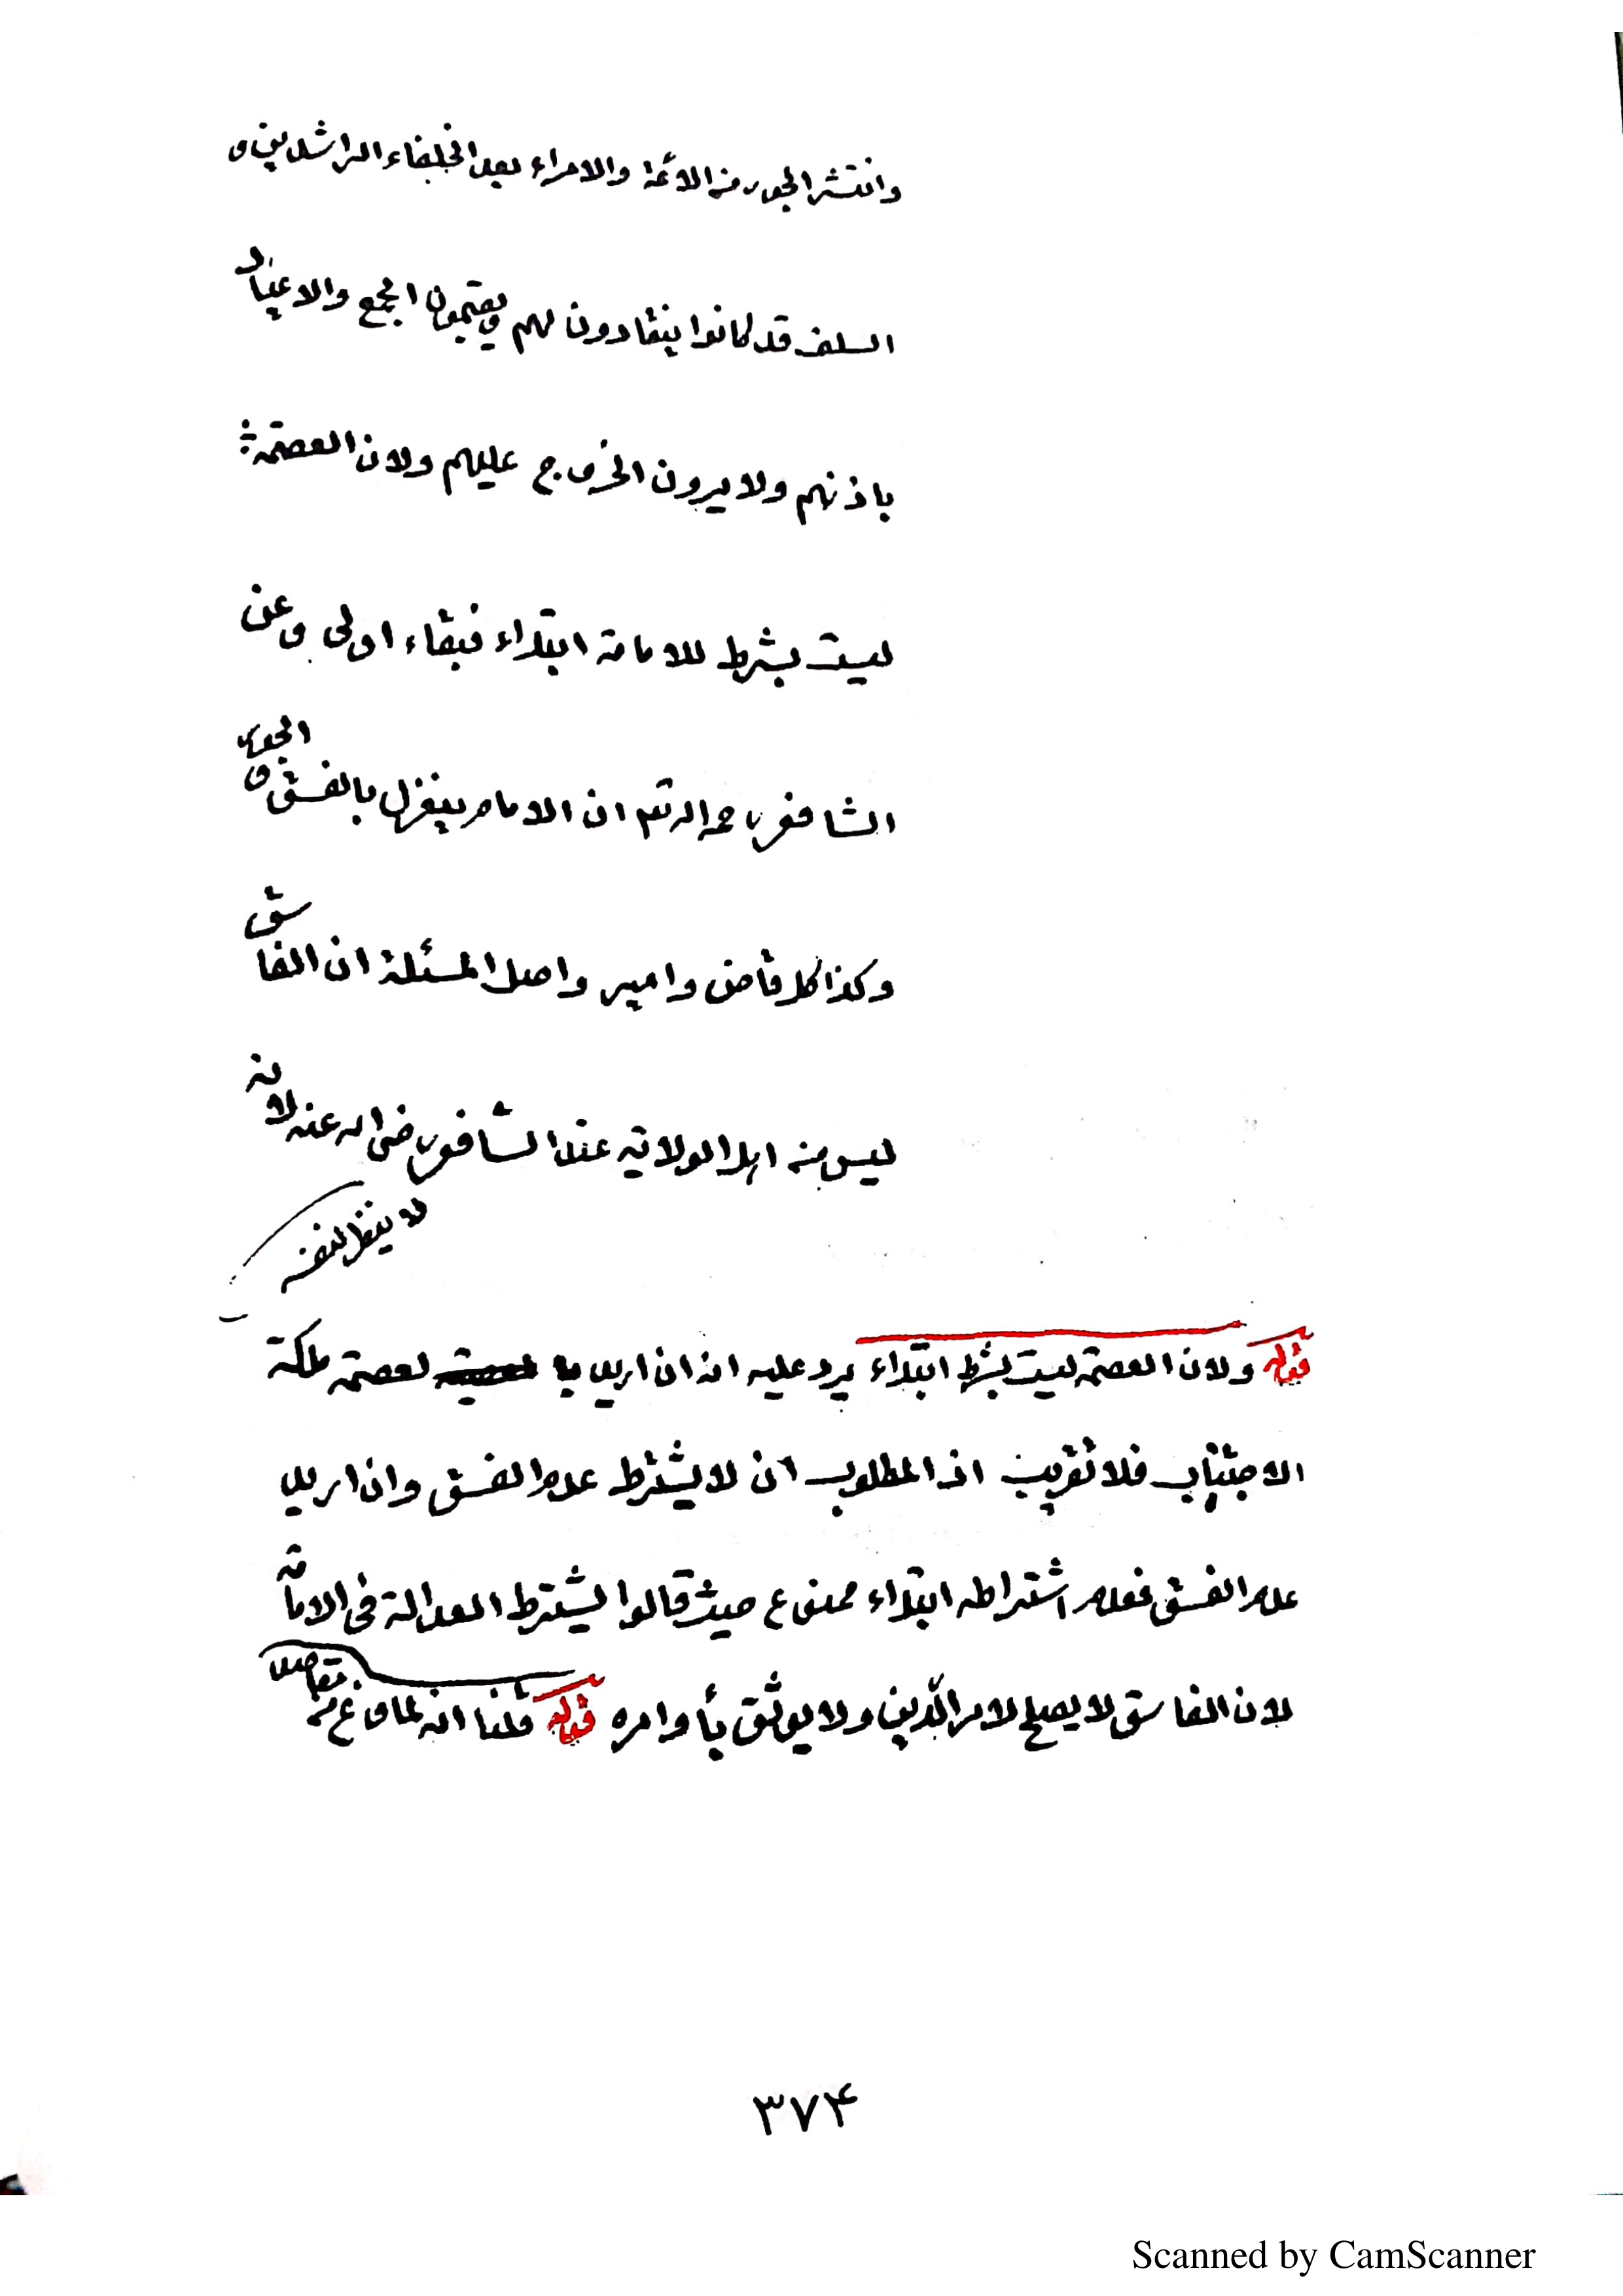 وانتشر الجور من الائمة والامراء بعد الخلفاء الراشدين و
السلف قد كانوا ينقادون لهم ويقيمون الجمع والاعياد
باذنهم ولا يرون الخروج عليهم ولان العصمة
ليست بشرط للامامة ابتداء فبقاء اولى وعن
الشافعي رحمه الله تع ان الامام ينعزل بالفسق و الجور
وكذا كل قاض وامير واصل المسئلة ان الفاسق
ليس من اهل الولاية عند الشافعي رضى الله عنه لانه
لا ينظر لنفسه
قوله ولان العصمة ليست بشرط ابتداء يرد عليه انه ان اريد با لعصمة ملكة
الاجتناب فلا تقريب اذ المطلوب ان لا يشترط عدم الفسق وان اريد
عدم الفسق فعدم اشتراطه ابتداء ممنوع حيث قالوا يشترط العدالة فى الامامة
لان الفاسق لا يصلح لامر الدين ولا يوثق بأوامره قوله قلنا انه لما وقع
۳۷۴
Scanned by CamScanner